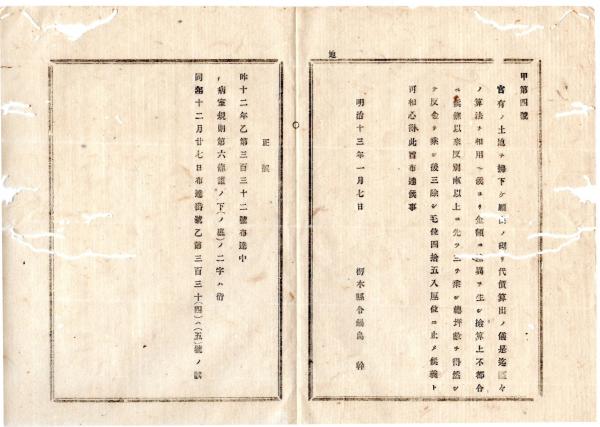 甲第四號
官有ノ土地ヲ拂下ケ願出ノ砌リ代價算出ノ儀是迄區々
ノ算法ヲ相用ヘ候ヨリ金額ニ差異ヲ生シ檢算上不都合
候條以來反別畝以上ニ先ツ三ヲ乘シ總坪數ヲ得然シ
テ反金ヲ乘シ後三除シ毛位四拾五入厘位ニ止メ候義ト
可相心得此旨布達候事
明治十三年一月七日
栃木縣令鍋島 幹
正誤
昨十二年乙第三百三十二號布達中
病室規則第六條 ノ下(ノ)ノ二字ハ衍
同年十二月廿七日布達番號乙第三百三十(四)ハ(五)號ノ誤